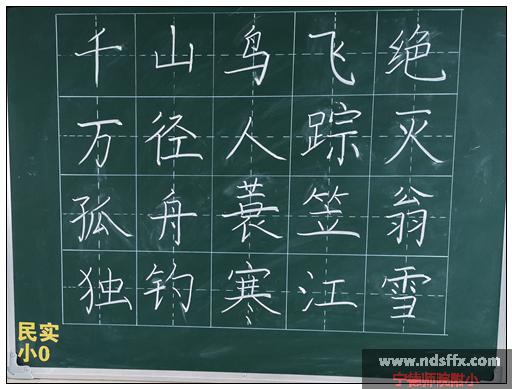 千山鸟飞绝
万径人踪灭
孤舟蓑笠翁
独钓寒江雪
民实
小0
www.ndsffx.com
宁德师院附小